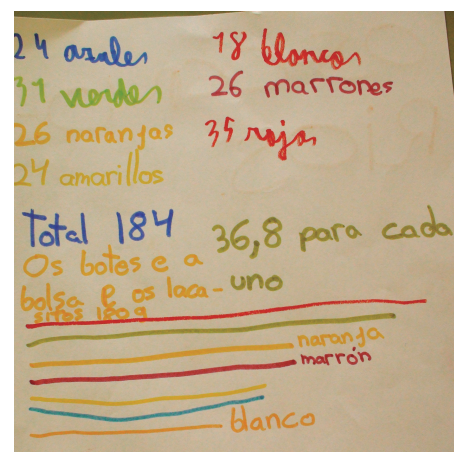 24 azules
31 verdes
26 naranjas
24 amarillos
18 blancos
26 marrones
35 rojos
Total 184
36,8 para cada
uno
Os botes e a
bolsa e os laca-
sitos 180g
naranja
marrón
blanco